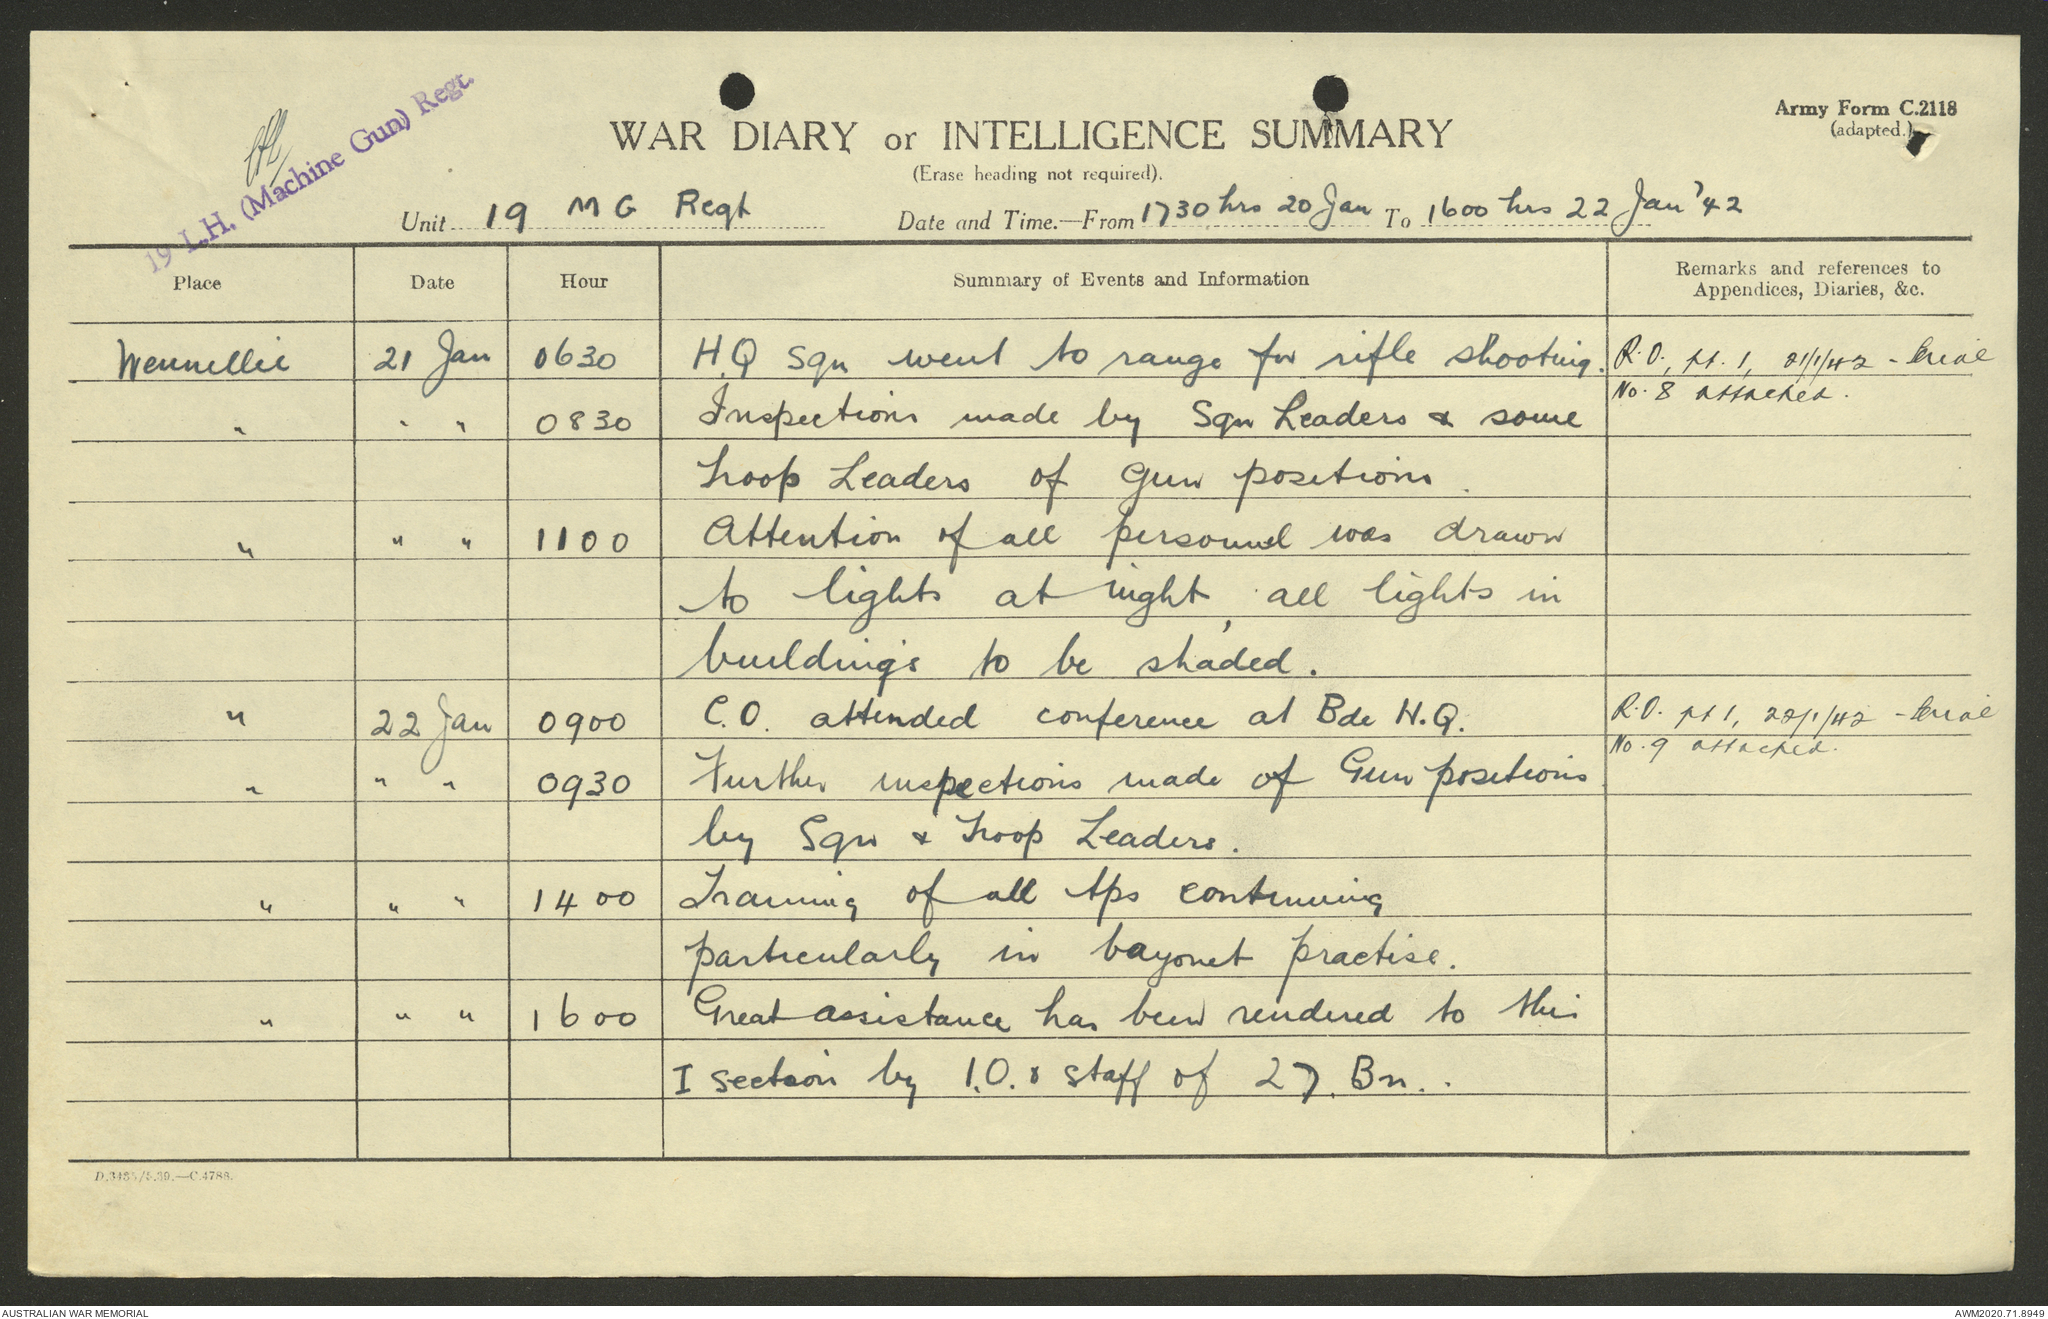 19 L.H. (Machine Gun) Regt.
Army Form C.2118
(adapted.)
WAR DIARY or INTELLIGENCE SUMMARY
(Erase heading not required).
Unit 19 MG Regt Date and Time.—From 1730 hrs 20 Jan To 1600 hrs 22 Jan '42
Place Date Hour Summary of Events and Information Remarks and references to
Appendices, Diaries, &c.
Wennellie 21 Jan 0630 H.Q Sqn went to range for rifle shooting. R.O. pt. 1, 21/1/42 - Serial
No. 8 attached.
" " " 0830 Inspections made by Sqn Leaders & some
Troop Leaders of Gun positions.
" " " 1100 Attention of all personnel was drawn
to lights at night, all lights in
buildings to be shaded.
" 22 Jan 0900 C.O. attended conference at Bde H.Q. R.O. pt 1, 22/1/42 - Serial
No. 9 attached.
" " " 0930 Further inspections made of Gun positions
by Sqn & Troop Leaders.
" " " 1400 Training of all tps continuing
particularly in bayonet practise.
" " " 1600 Great assistance has been rendered to this
I section by I.O. & staff of 27. Bn..
D.3485/5.39.—C.4788.
AUSTRALIAN WAR MEMORIAL AWM2020.71.8949